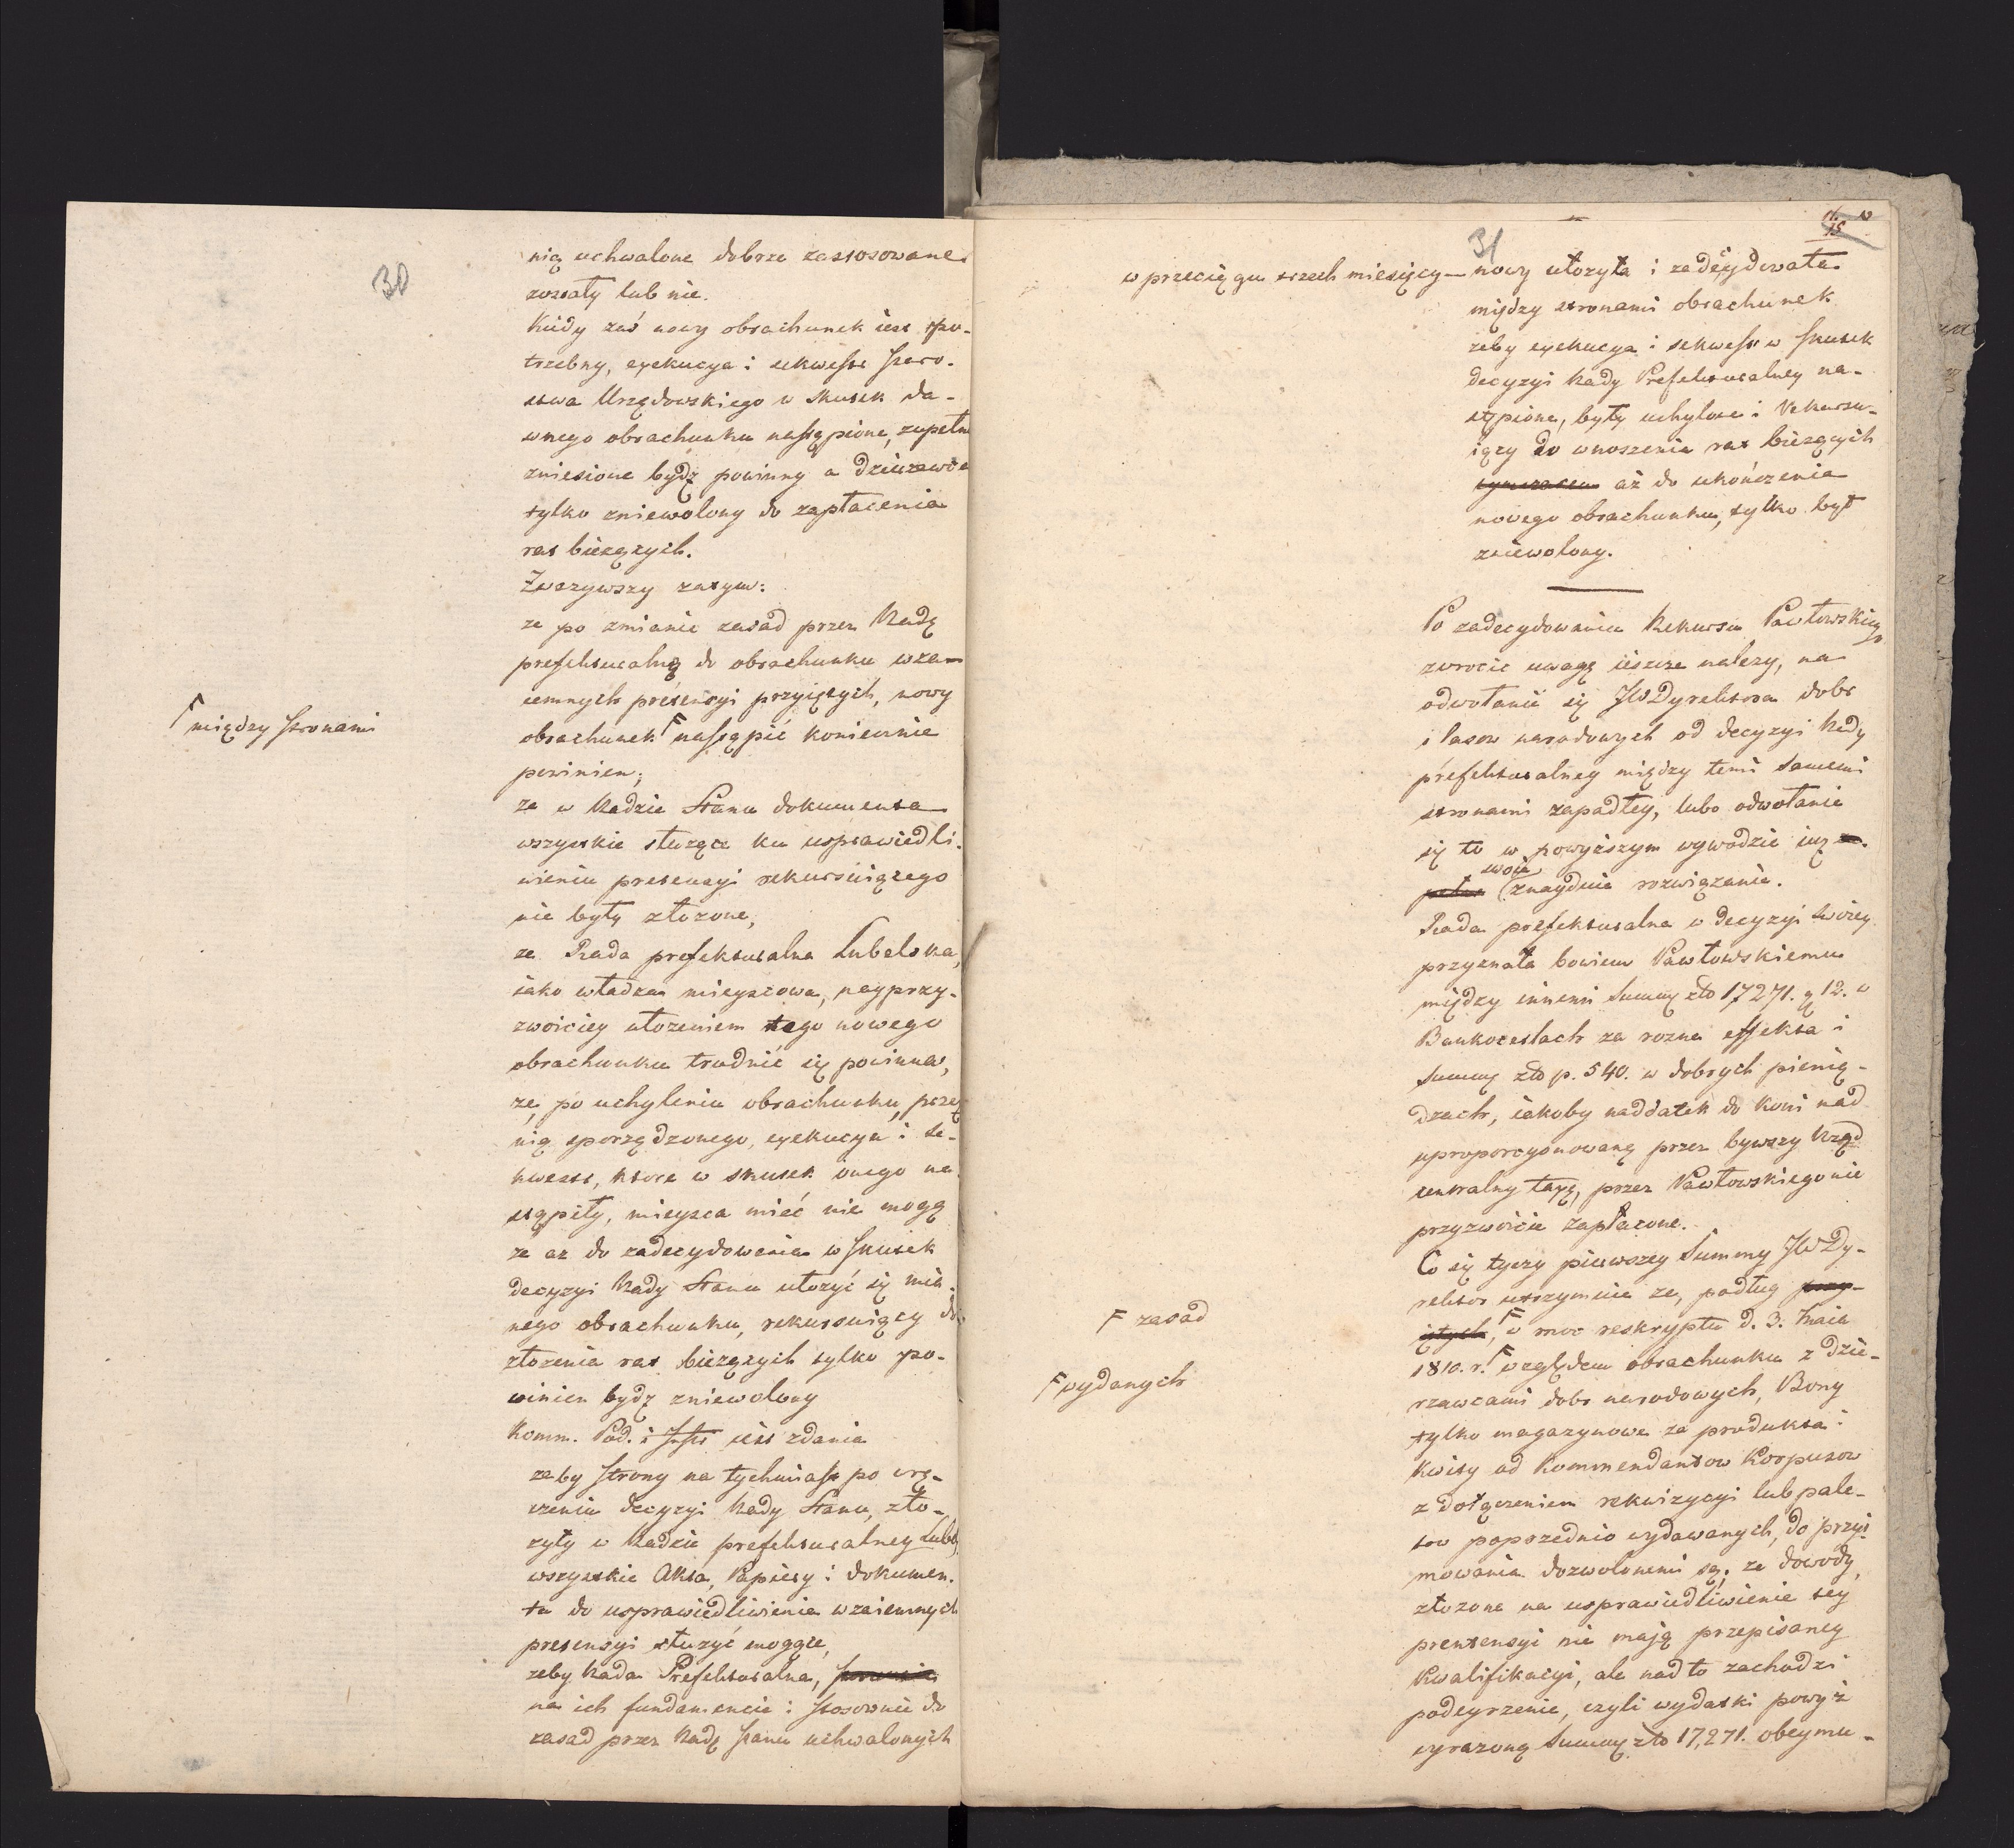 30
nią uchwalone dobrze zastosowane
zostały lub nie.
Kiedy zaś nowy obrachunek iest po-
trzebny, exekucya i sekwestr Staro-
stwa Urzędowskiego w skutek da-
wnego obrachunku nastąpione, zupełn
zniesione bydź powinny a dzierzawca
tylko zniewolony do zapłacenia
rat bieżących.
Zważywszy zatym:
ze po zmianie zasad przez Radę
prefekturalną do obrachunku wza-
iemnych pretensyi przyiętych, nowy
obrachunek Γ nastąpić koniecznie
Γ między stronami
powinien;
ze w Radzie Stanu dokumenta
wszystkie służące ku usprawiedli-
wieniu pretensyi rekurruiącego
nie były złożone,
ze Rada prefekturalna Lubelska,
iako władza mieyscowa, nayprzy-
zwoiciey ułożeniem tego nowego
obrachunku trudnić się powinna,
ze, po uchyleniu obrachunku, przez
nią sporządzonego, exekucya i se-
kwestr, które w skutek onego na
stąpiły, mieysca mieć nie mogą
ze aż do zadecydowania w skutek
decyzyi Rady Stanu ułożyć się mia-
nego obrachunku, rekurruiący do
złożenia rat bieżących tylko po-
winien bydź zniewolony
Komm. Pod. i Instr. iest zdania
zeby strony na tychmiast po wrę-
czeniu decyzyi Rady Stanu, zło-
żyły w Radzie prefekturalney Lubel.
wszystkie Akta, Papiery i dokumen-
ta do usprawiedliwienia wzaiemnych
pretensyi służyć mogące,
zeby Rada Prefekturalna,
na ich fundamencie i stosownie do
zasad przez Radę Stanu uchwalonych
31
15
w przeciągu trzech miesięcy nowy ułożyła i zadecydowała
między stronami obrachunek
zeby exekucya i sekwestr w skutek
decyzyi Rady Prefekturalney na-
stąpione, były uchylone i Rekurru-
iący do wnoszenia rat bieżących
tymczasem aż do ukończenia
nowego obrachunku, tylko był
zniewolony.
Po zadecydowaniu Rekursu Pawłowskiego
zwrócić uwagę ieszcze należy, na
odwołanie się JW Dyrektora dobr
i lasow narodowych od decyzyi Rady
prefekturalney między temi samemi
stronami zapadłey, lubo odwołanie
się to w powyższym wywodzie iuż
swoie
znayduie rozwiązanie.
Rada prefekturalna w decyzyi swoiey
przyznała bowiem Pawłowskiemu
między innemi Summę zło 17271. g 12. w
Bankocetlach za rozne effekta i
summę zło p. 540. w dobrych pienią-
dzach, iakoby naddatek do koni nad
uproporcyonowaną przez bywszy Rząd
centralny taxę, przez Pawłowskiego nie
przyzwoicie zapłacone.
Co się tyczy pierwszey Summy JW Dy-
rektor utrzymuie ze, podług przy-
iętych, Γ w moc reskryptu d. 3. Maia
Γ zasad
1810. r. Γ względem obrachunku z dzie-
Γ wydanych
rzawcami dobr narodowych, Bony
tylko magazynowe za produkta i
Kwity od Kommendantow Korpusow
z dołączeniem rekwizycyi lub pale-
tow poprzednio wydawanych, do przyi-
mowania dozwolonemi są; ze dowody,
złożone na usprawiedliwienie tey
prentensyi nie mają przepisaney
Kwalifikacyi, ale nad to zachodzi
podeyrzenie, czyli wydatki powyż
wyrazoną Summę zło 17,271. obeymu-